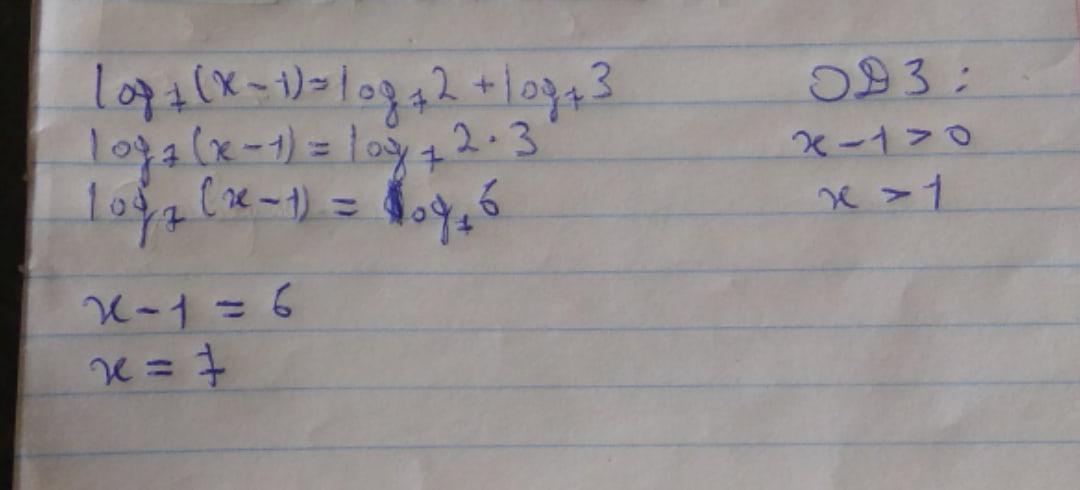 log₇(x-1)=log₇2+log₇3
log₇(x-1)=log₇2·3
log₇(x-1)=log₇6
x-1=6
x=7
ОДЗ:
x-1>0
x>1